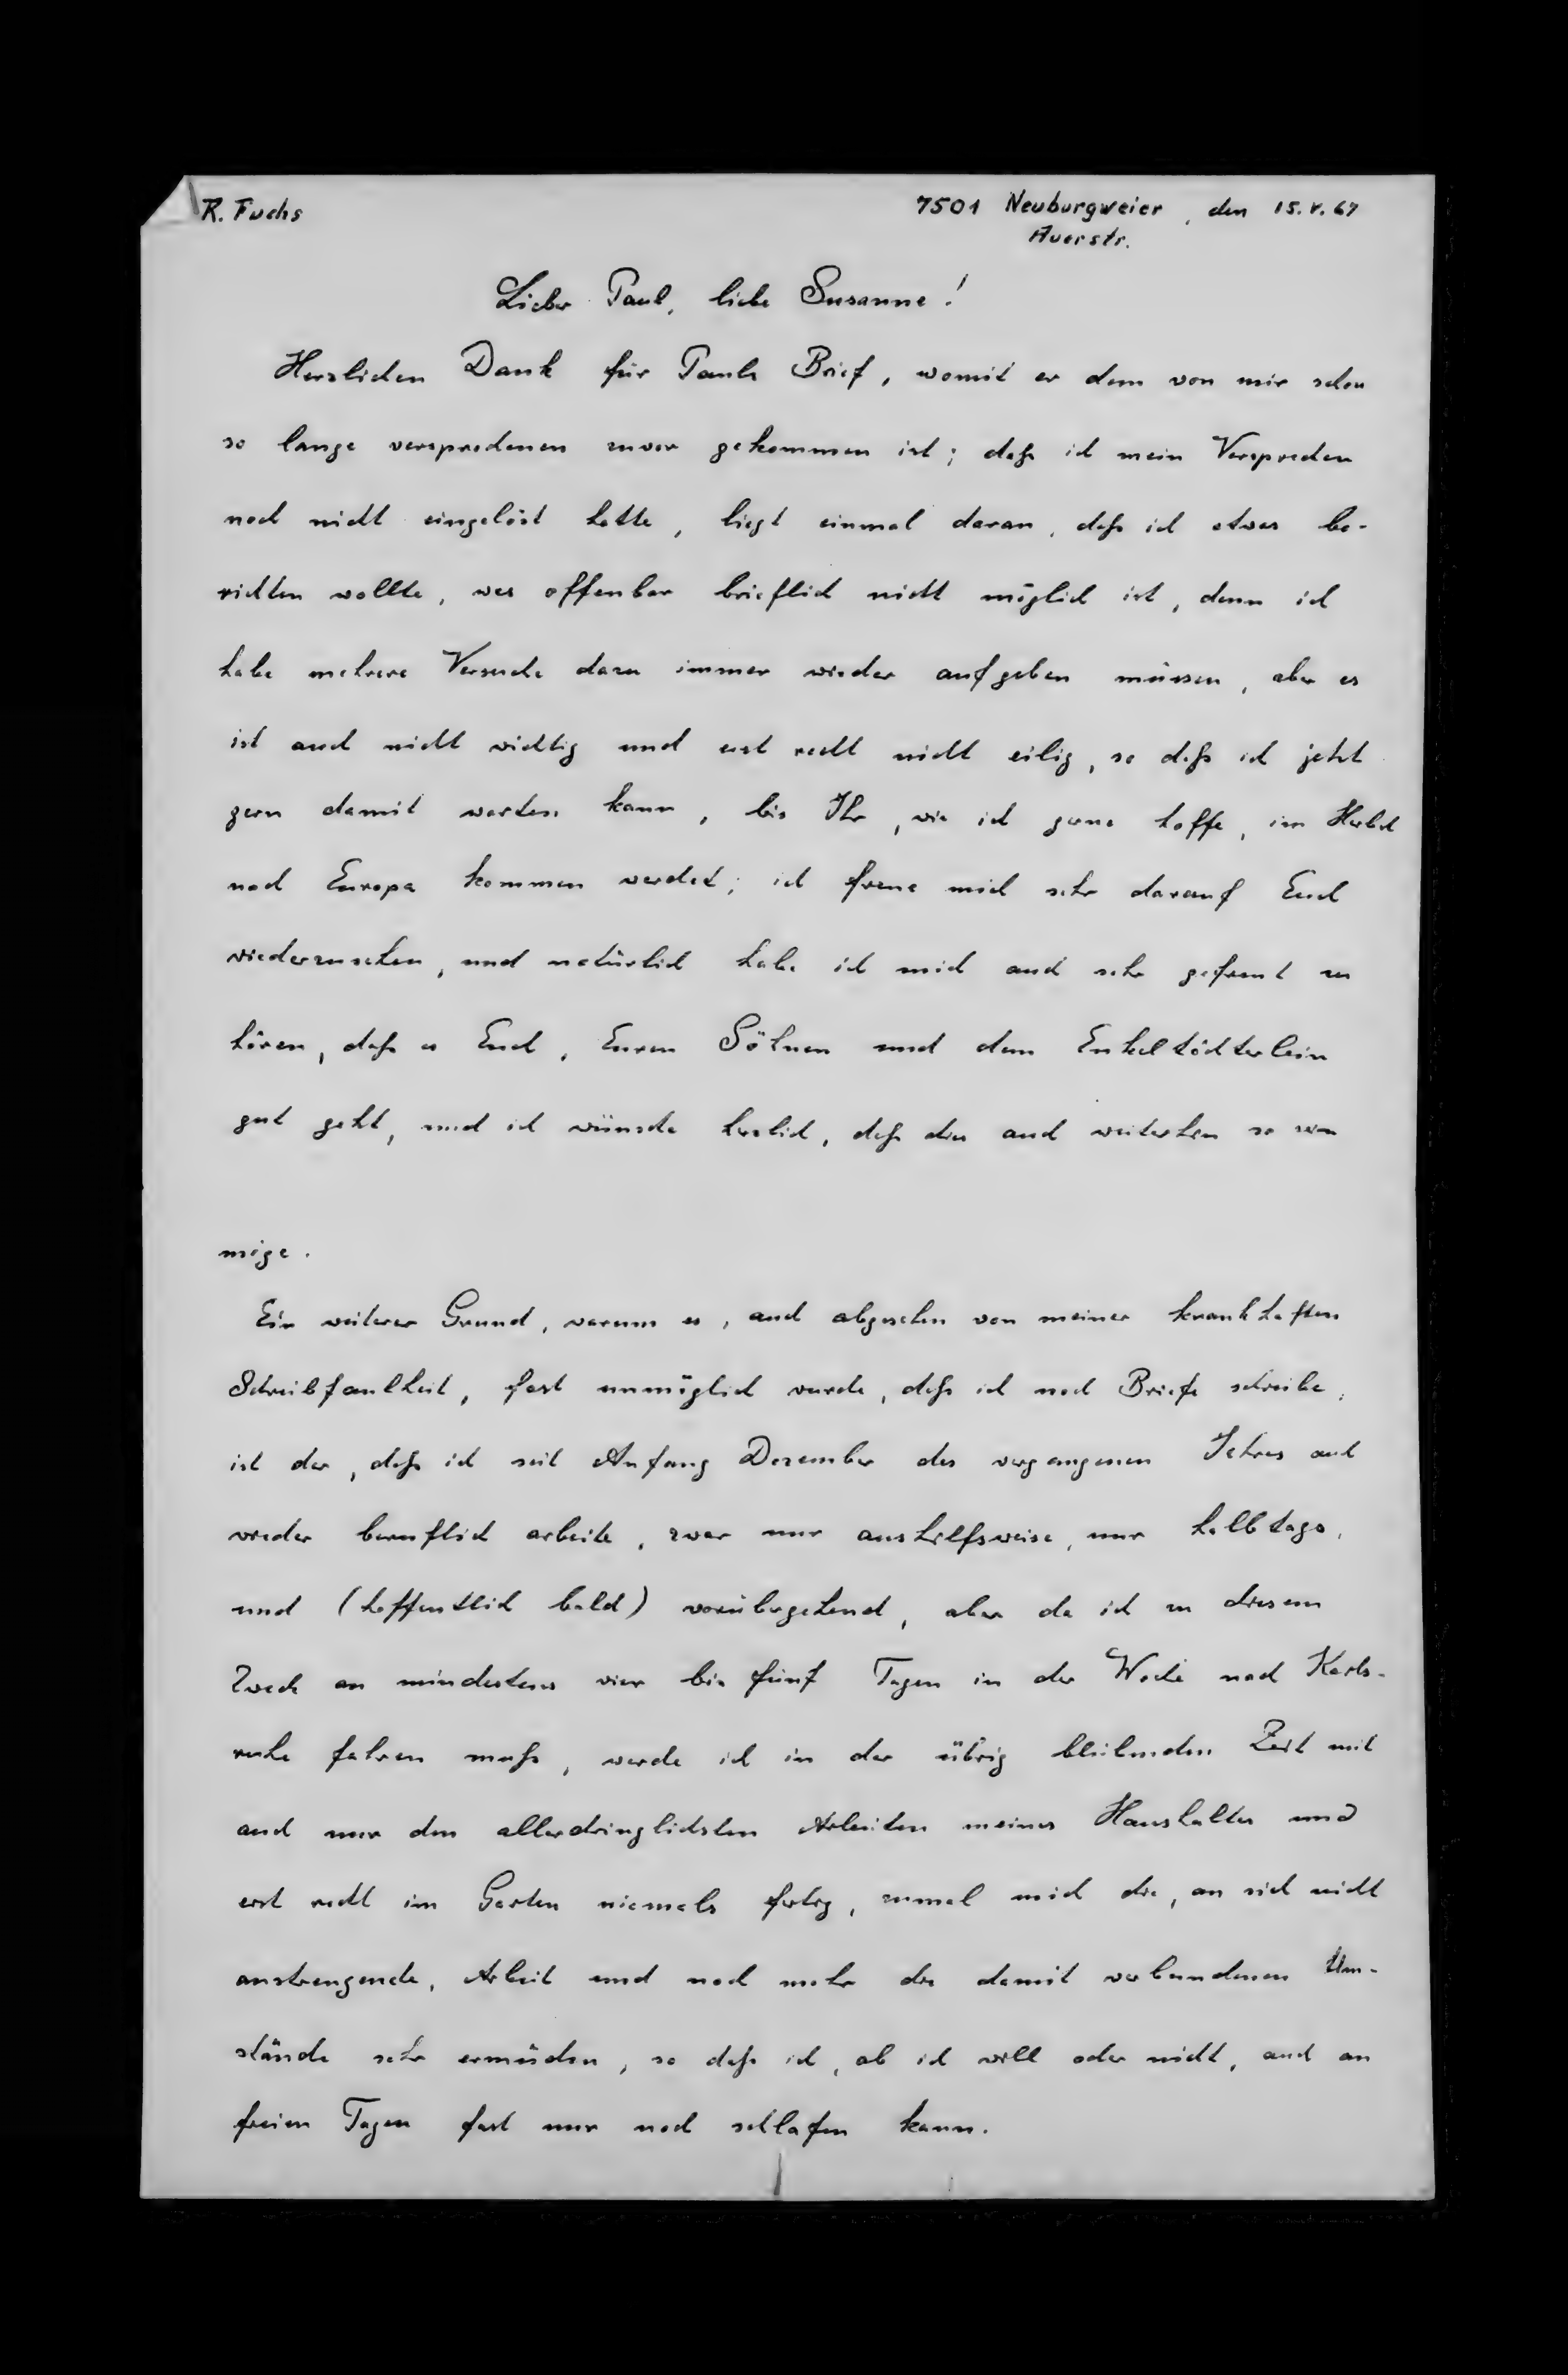 R. Fuchs
7501 Neuburgweier, den 15.V.67
Auerstr.
Lieber Paul, liebe Susanne!
Herzlichen Dank für Pauls Brief, womit er dem von mir schon
so lange versprochenen zuvor gekommen ist; daß ich mein Versprechen
noch nicht eingelöst hatte, liegt einmal daran, daß ich etwas be-
richten wollte, was offenbar brieflich nicht möglich ist, denn ich
habe mehrere Versuche dazu immer wieder aufgeben müssen, aber es
ist auch nicht wichtig und erst recht nicht eilig, so daß ich jetzt
gern damit warten kann, bis Ihr, wie ich gerne hoffe, im Herbst
nach Europa kommen werdet; ich freue mich sehr darauf Euch
wiederzusehen, und natürlich habe ich mich auch sehr gefreut zu
hören, daß es Euch, Euren Söhnen und dem Enkeltöchterlein
gut geht, und ich wünsche herzlich, daß dies auch weiterhin so sein
möge.
Ein weiterer Grund, warum es, auch abgesehen von meiner krankhaften
Schreibfaulheit, fast unmöglich wurde, daß ich noch Briefe schreibe,
ist der, daß ich seit Anfang Dezember des vergangenen Jahres auch
wieder beruflich arbeite, zwar nur aushilfsweise, nur halbtags,
und (hoffentlich bald) vorübergehend, aber da ich zu diesem
Zweck an mindestens vier bis fünf Tagen in der Woche nach Karls-
ruhe fahren muß, werde ich in der übrig bleibenden Zeit mit
auch nur den allerdringlichsten Arbeiten meines Haushaltes und
erst recht im Garten niemals fertig, zumal mich die, an sich nicht
anstrengende, Arbeit und noch mehr die damit verbundenen Um-
stände sehr ermüden, so daß ich, ob ich will oder nicht, auch an
freien Tagen fast nur noch schlafen kann.